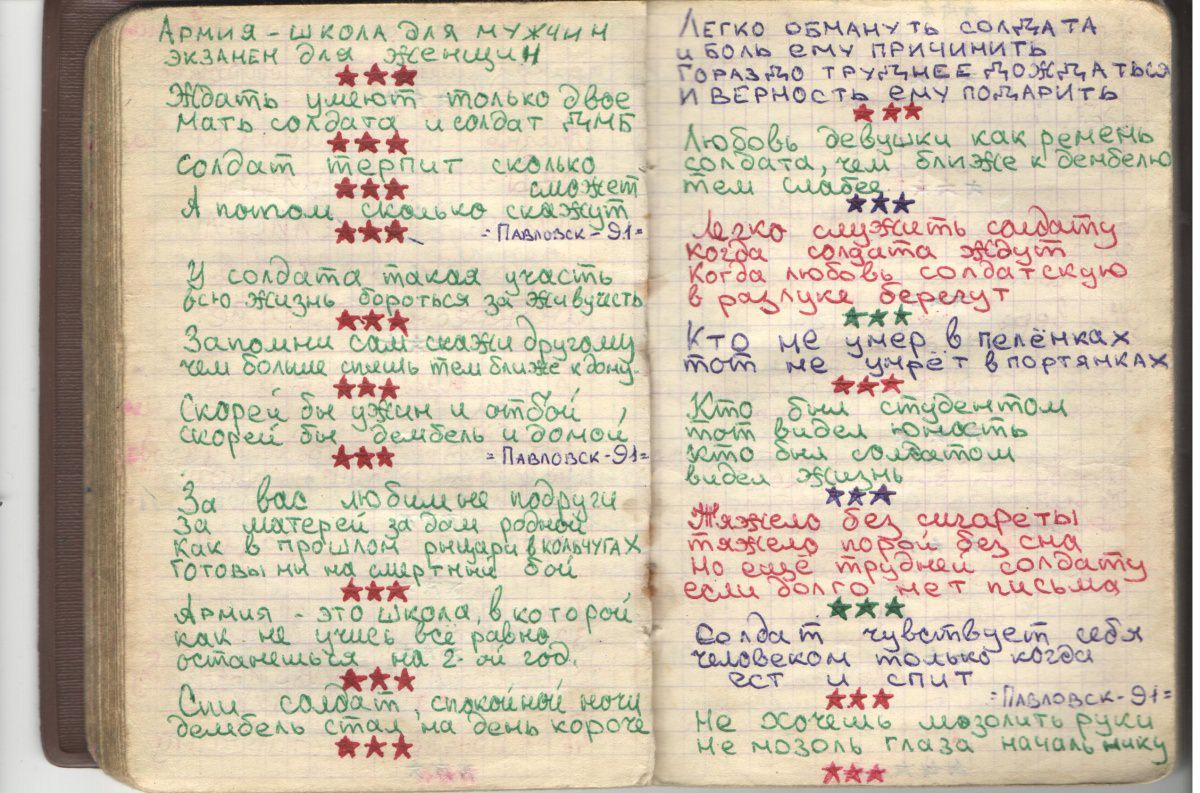 Армия - школа для мужчин
экзамен для женщин
Ждать умеют только двое
мать солдата и солдат ДМБ
Солдат терпит сколько
сможет
А потом сколько скажут
= Павловск - 91 =
У солдата такая участь
всю жизнь бороться за живучесть
Запомни сам скажи другому
чем больше спишь тем ближе к дому.
Скорей бы ужин и отбой,
скорей бы дембель и домой
= Павловск - 91 =
За вас любимые подруги
За матерей за дом родной
как в прошлом рыцари в кольчугах
готовы мы на смертный бой
Армия - это школа, в которой
как не учись всё равно
останешься на 2-ой год.
Спи солдат, спокойной ночи
дембель стал на день короче
Легко обмануть солдата
и боль ему причинить
гораздо труднее дождаться
и верность ему подарить
Любовь девушки как ремень
солдата, чем ближе к дембелю
тем слабее
Легко служить солдату
когда солдата ждут
Когда любовь солдатскую
в разлуке берегут
Кто не умер в пелёнках
тот не умрёт в портянках
Кто был студентом
тот видел юность
кто был солдатом
видел жизнь
Тяжело без сигареты
тяжело порой без сна
Но ещё трудней солдату
если долго нет письма
Солдат чувствует себя
человеком только когда
ест и спит
= Павловск - 91 =
Не хочешь мозолить руки
не мозоль глаза начальнику